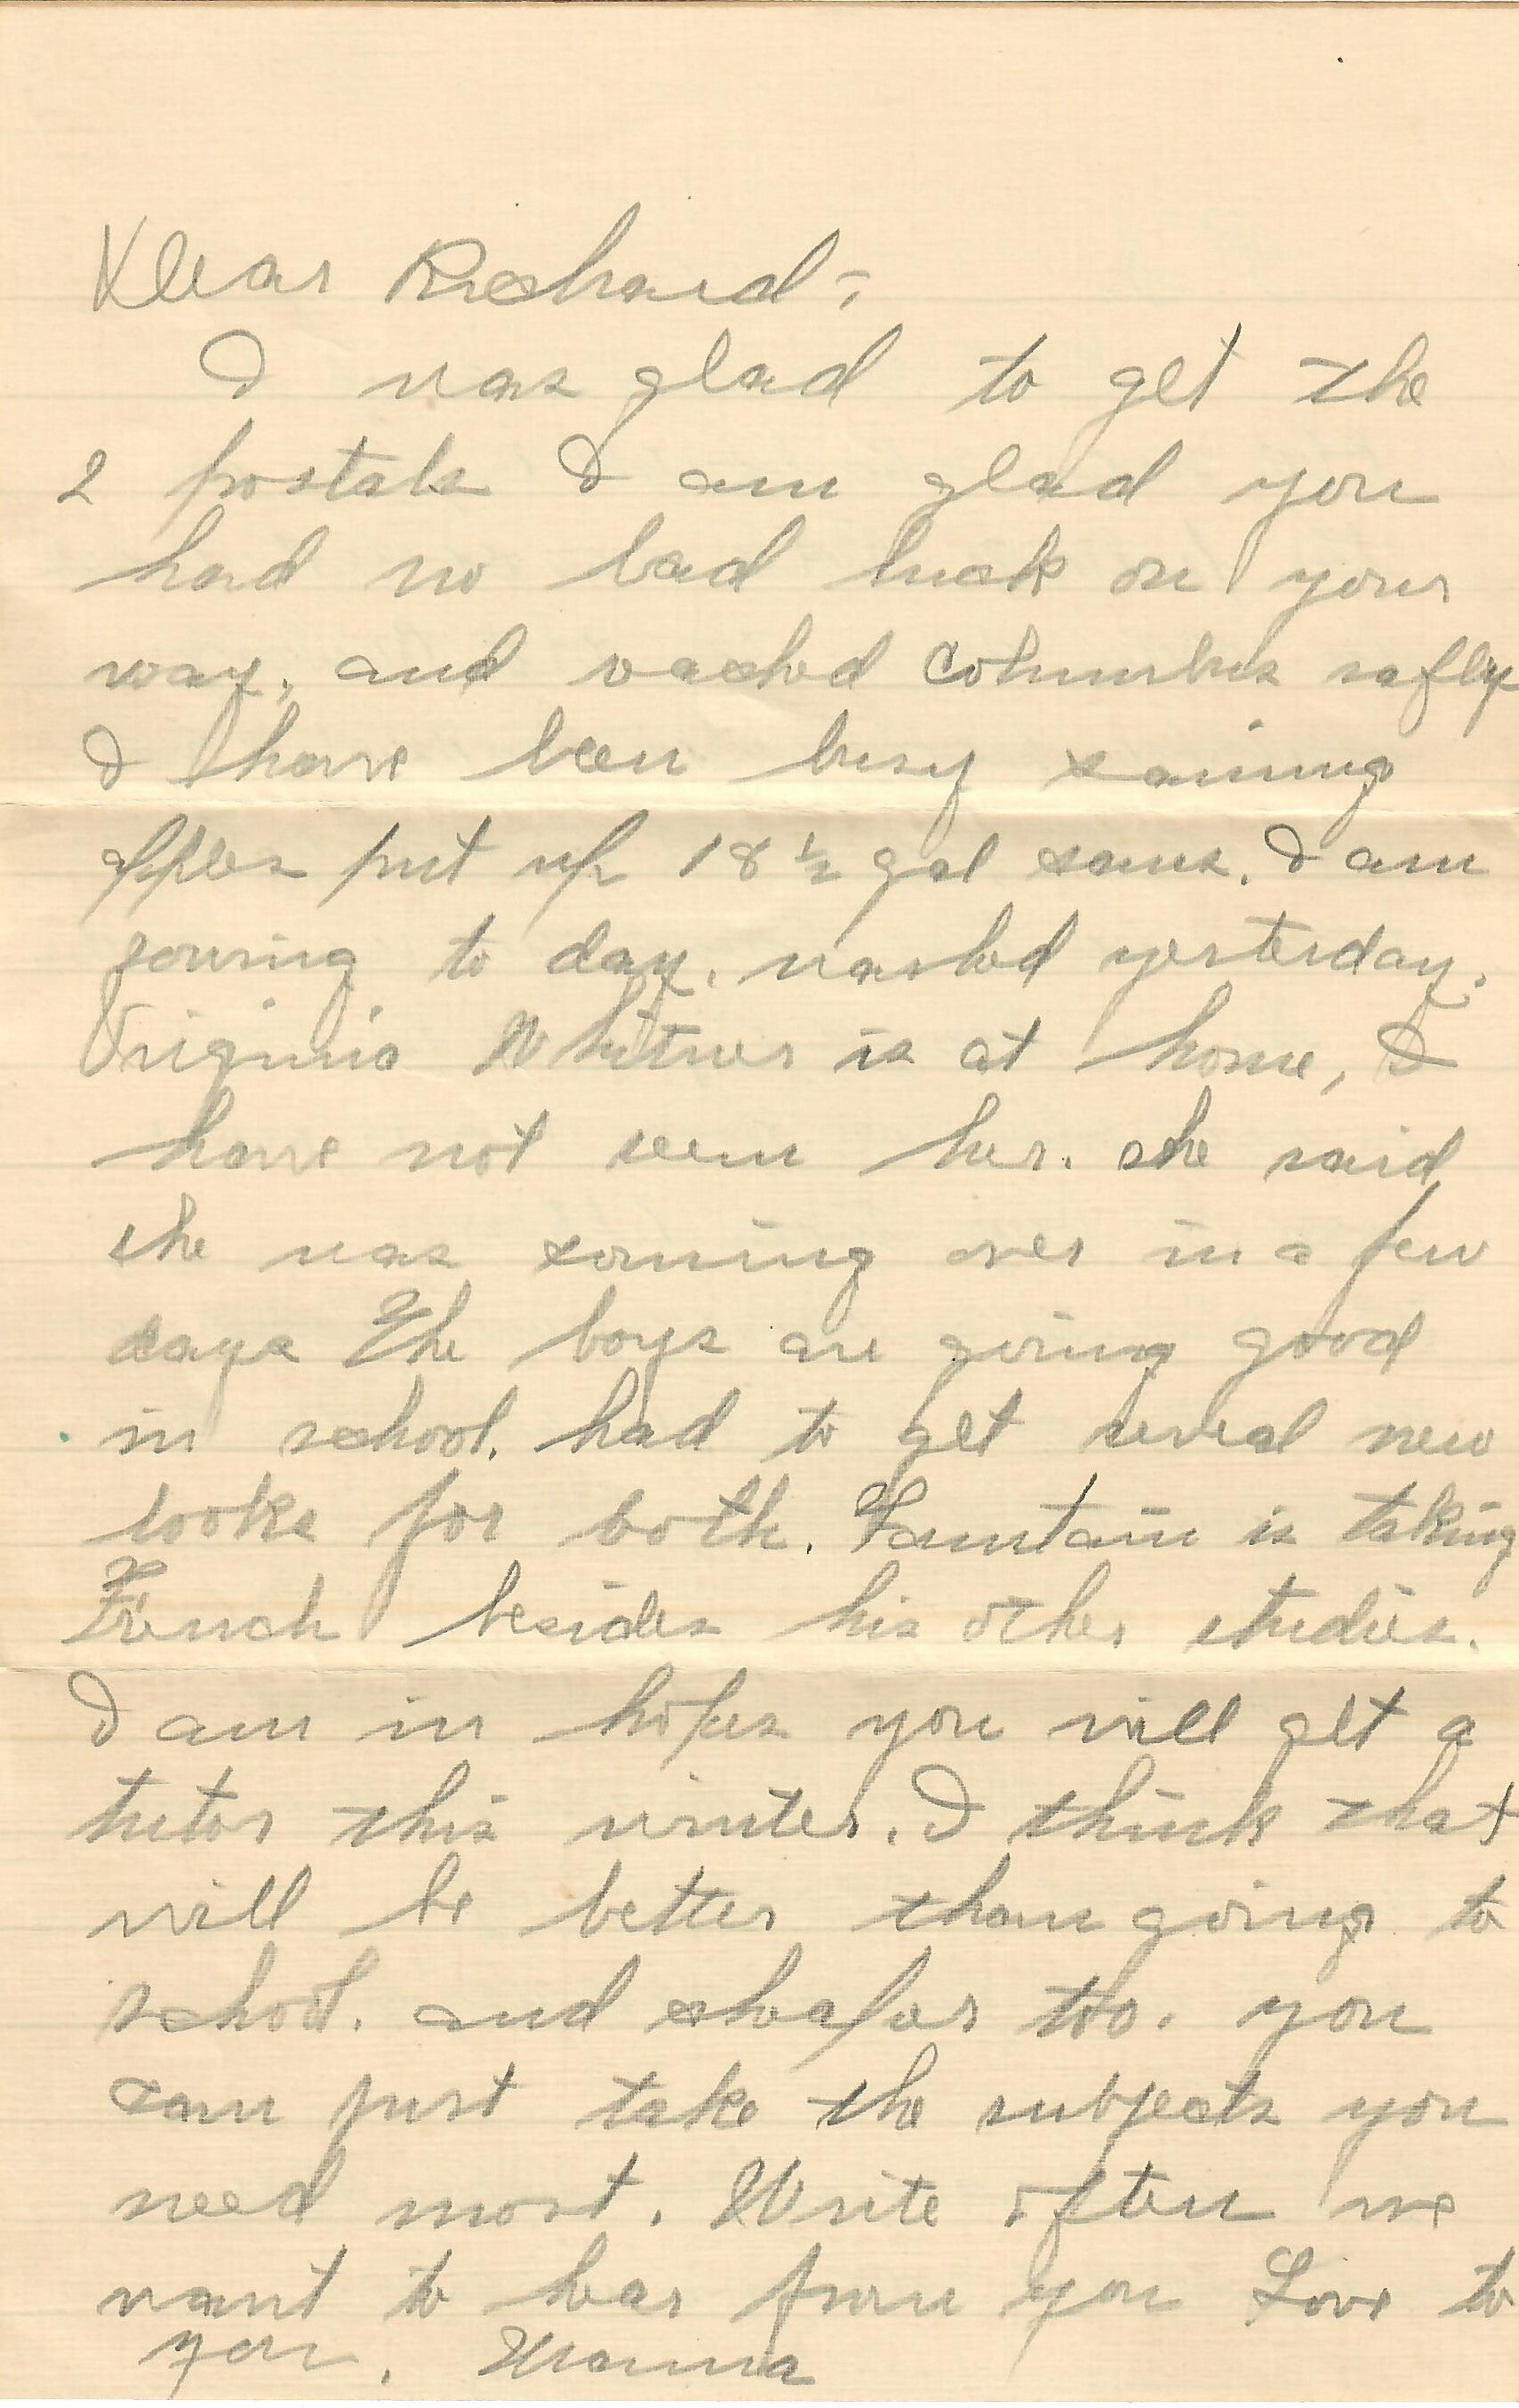 Dear Richard-;
I was glad to get the
2 postals I am glad you
had no bad luck on your
way, and reached Columbus safly
I have been busy caning
apples put up 18 1/2 gal cans. I am
to day. washed yesterday.
Virginia Whitmer is at home, I
have not seen her. she said
she was coming over in a few
days The boys are going good
in school. had to get several new
books for both. Fountain is taking
French besides his other studies.
I am in hopes you will get a
tutor this winter. I think that
will be better than going to
school. and cheaper too. you
can just take the subjects you
need most. Write often we
want to hear from you Love to
you. Mamma